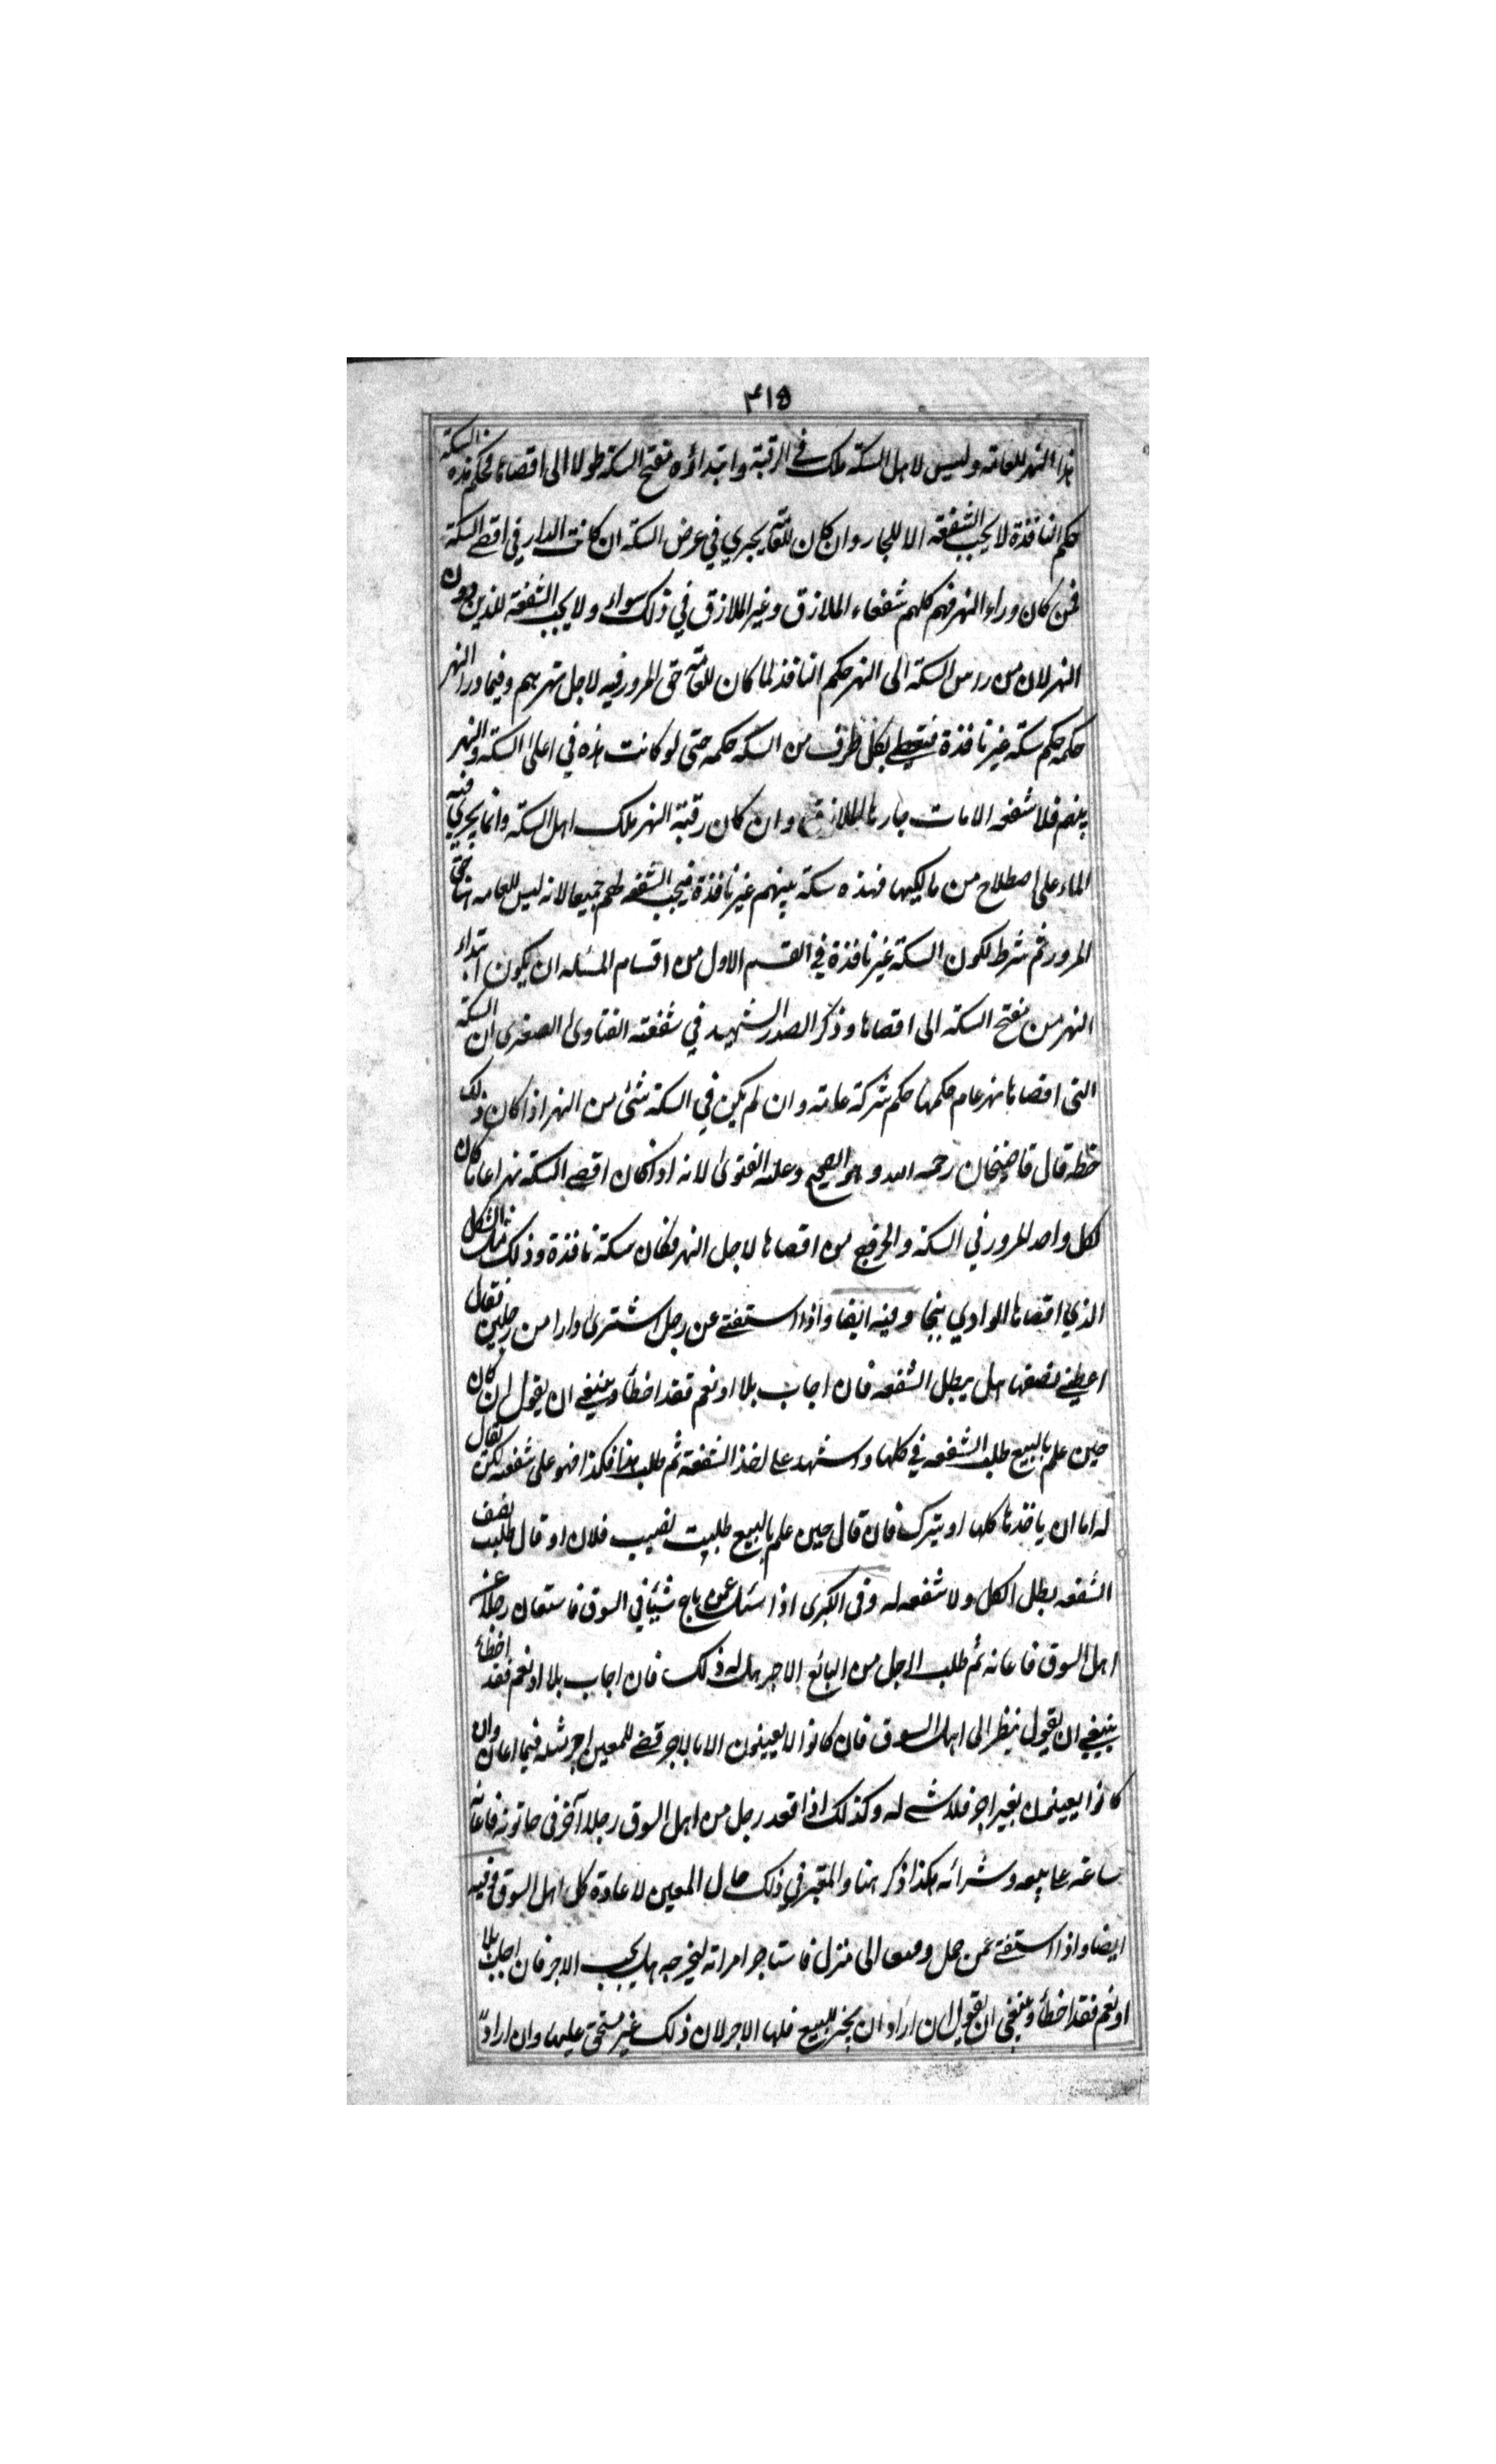 ٣١٥
هذا النهر للعامة وليس لاهل السكة ملك في الرقبة وابتداؤه مفتح السكة طولا الى اقصاها فحكم هذه السكة
حكم النافذة لا يجب الشفعة الا للجار وان كان للعامة يجري في عرض السكة ان كانت الدار في اقصى السكة
فمن كان وراء النهر فهم كلهم شفعاء الملازق وغير الملازق في ذلك سواء ولا يجب الشفعة للذين دون
النهر لان من راس السكة الى النهر حكم النافذ لما كان للعامة حق المرور فيه لاجل شربهم وفيما وراء النهر
حكمه حكم سكة غير نافذة فيعطى بكل طرف من السكة حكمه حتى لو كانت هذه في اعلى السكة والنهر
بينهم فلا شفعة الا مات جارها الملازق وان كان رقبة النهر ملك اهل السكة وانما يجري فيه
الماء على اصطلاح من مالكيها فهذه سكة بينهم غير نافذة فيجب الشفعة لهم جميعا لانه ليس للعامة هنا حق
المرور ثم شرط لكون السكة غير نافذة في القسم الاول من اقسام المسئلة ان يكون ابتداء
النهر من مفتح السكة الى اقصاها وذكر الصدر الشهيد في شفعة الفتاوى الصغرى ان السكة
التي اقصاها نهر عام حكمها حكم شركة عامة وان لم يكن في السكة شئ من النهر اذا كان ذلك
خطه قال قاضيخان رحمه الله وهو الصحيح وعليه الفتوى لانه اذا كان اقصى السكة نهرا عاما كان
لكل واحد المرور في السكة والخروج من اقصاها لاجل النهر فكان سكة نافذة وذلك مثل السكك
الذي اقصاها الوادي ببخارا وفيه ايضا واذا استفتي عن رجل اشترى دارا من رجلين فقال
اعطني نصفها هل يبطل الشفعة فان اجاب بلا او نعم فقد اخطأ وينبغي ان يقول ان كان
حين علم بالبيع طلب الشفعة في كلها واشهد على اخذ الشفعة ثم طلب هذا فكذا فهو على شفعته لكن يقال
له اما ان ياخذها كلها او يترك فان قال حين علم بالبيع طلبت نصيب فلان او قال طلبت نصف
الشفعة بطل الكل ولا شفعة له وفى الكبرى اذا سئل عمن باع شيئا في السوق فاستعان رجلا من
اهل السوق فاعانه ثم طلب الرجل من البائع الاجر هل له ذلك فان اجاب بلا او نعم فقد اخطأ
ينبغي ان يقول ينظر الى اهل السوق فان كانوا لا يعينون الا بالاجر قضي للمعين اجر مثله فيما اعان وان
كانوا يعينون بغير اجر فلا شئ له وكذلك اذا قعد رجل من اهل السوق رجلا آخر في حانوته فاعانه
ساعة على بيعه وشرائه هكذا ذكر هنا والمعتبر في ذلك حال المعين لا عادة كل اهل السوق وفيه
ايضا واذا استفتي عمن حمل دقيقا الى منزل فاستاجر امراته ليخبزه هل يجب الاجر فان اجاب بلا
او نعم فقد اخطأ وينبغي ان يقول ان اراد ان يخبز للبيع فلها الاجر لان ذلك غير مستحق عليها وان اراد